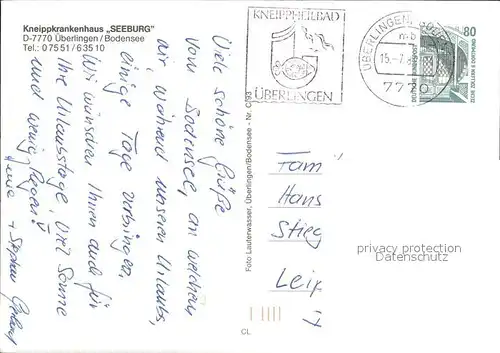 Kneippkrankenhaus „SEEBURG"
D-7770 Überlingen/Bodensee
Tel.: 07551/63510
Viele schöne Grüße
vom Bodensee, an welchem
wir während unseres Urlaubs,
einige Tage verbringen.
Wir wünschen Ihnen auch für
Ihre Urlaubstage, viel Sonne
und wenig Regen!
+ Stephan
Foto Lauterwasser, Überlingen/Bodensee - Nr. C/93
CL
KNEIPPHEILBAD
ÜBERLINGEN
ÜBERLINGEN, BODENSEE
mb
15.-7.
7770
80
DEUTSCHE BUNDESPOST
Fam
Hans
Stieg
Leip
privacy protection
Datenschutz